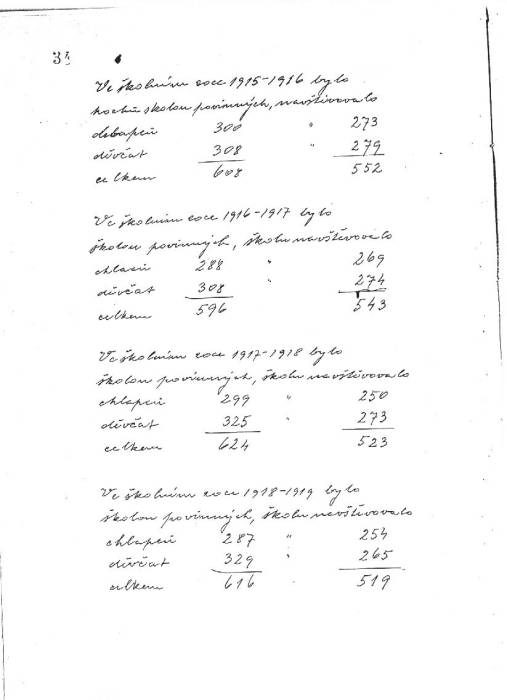 34
Ve školním roce 1915-1916 bylo
hochů školou povinných, navštěvovalo
chlapců 300 " 273
děvčat 308 " 279
celkem 608 552
Ve školním roce 1916-1917 bylo
školou povinných, školu navštěvovalo
chlapců 288 " 269
děvčat 308 " 274
celkem 596 543
Ve školním roce 1917-1918 bylo
školou povinných, školu navštěvovalo
chlapců 299 " 250
děvčat 325 " 273
celkem 624 523
Ve školním roce 1918-1919 bylo
školou povinných, školu navštěvovalo
chlapců 287 " 254
děvčat 329 " 265
celkem 616 519